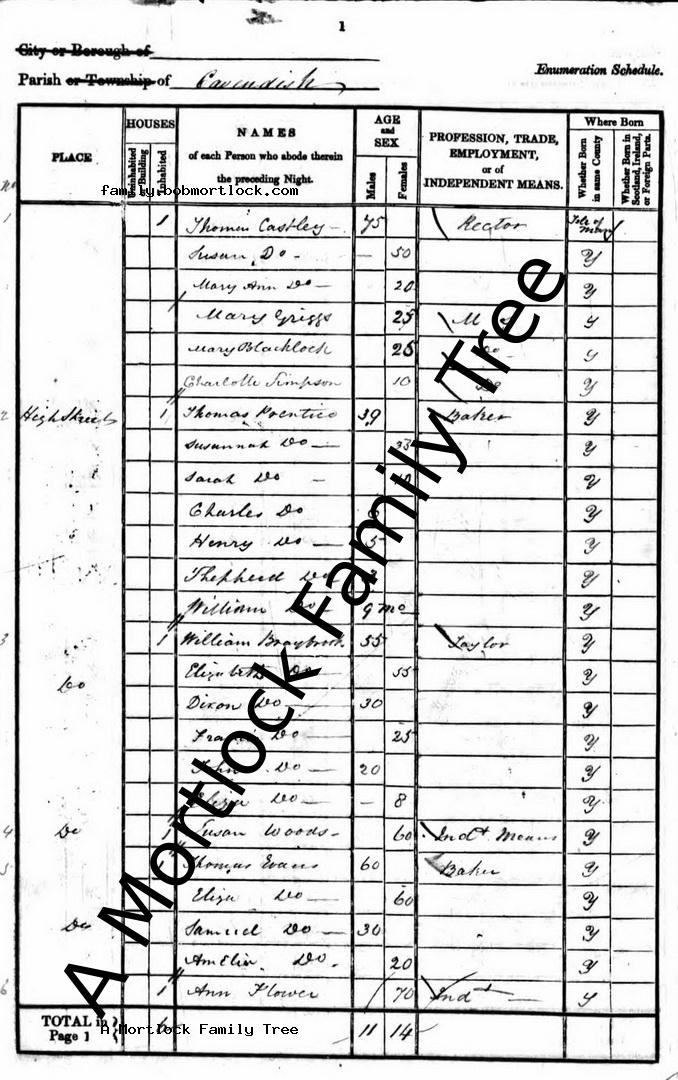 1
City or Borough of
Parish or Township of Cavendish
Enumeration Schedule.
PLACE
HOUSES
Uninhabited or Building
Inhabited
NAMES
of each Person who abode therein
the preceding Night.
AGE
and
SEX
Males
Females
PROFESSION, TRADE,
EMPLOYMENT,
or of
INDEPENDENT MEANS.
Where Born
Whether Born in same County
Whether Born in Scotland, Ireland, or Foreign Parts.
family.bobmortlock.com
1 1 Thomas Castley 75 Rector Isle of Man
Susan Do - 50 Y
Mary Ann Do 20 Y
Mary Griggs 25 Y
Mary Blacklock 25 Y
Charlotte Simpson 10 Do Y
2 High Street 1 Thomas Prentice 39 Baker Y
Susannah Do Y
Sarah Do Y
Charles Do Y
Henry Do 5 Y
Shepherd Do Y
William Do 9 mo Y
3 1 William Braybrook 55 Taylor Y
Do Elizabeth Do 55 Y
Dixon Do 30 Y
Do 25 Y
John Do 20 Y
Eliza Do - 8 Y
4 Do 1 Susan Woods 60 Indt Means Y
5 1 Thomas Evans 60 Baker Y
Eliza Do 60 Y
Do Samuel Do 30 Y
Amelia Do 20 Y
6 1 Ann Flower 70 Ind Y
TOTAL in
Page 1 11 14
A Mortlock Family Tree
A Mortlock Family Tree